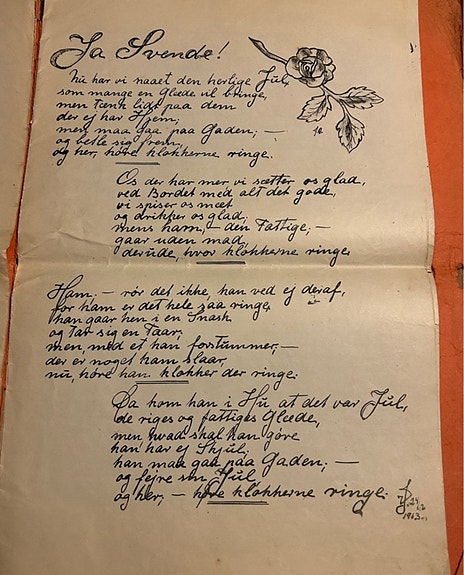 Ja Svende!
Nu har vi naaet den herlige Jul,
som mange en Glæde vil bringe,
men tænk lidt paa dem
der ej har Hjem;
men maa gaa paa Gaden; —
og betle sig frem,
og her, høre klokkerne ringe.
10.
Os der har mer vi sætter os glad,
ved Bordet med alt det gode,
vi spiser os mæt
og drikker os glad,
mens ham, — den Fattige; —
gaar uden mad,
derude, hvor klokkerne ringe.
Ham; — rör det ikke, han ved ej deraf,
for ham er det hele saa ringe,
han gaar hen i en Snask
og tar sig en Taar,
men med et han forstummer, —
der er noget ham slaar,
nu, höre han klokker der ringe.
Da kom han i Hu at det var Jul,
de riges og fattiges Glæde,
men hvad skal han göre
han har ej Skjul,
han maa gaa paa Gaden; —
og fejre sin Jul
og her, — höre klokkerne ringe.
24
12
1963